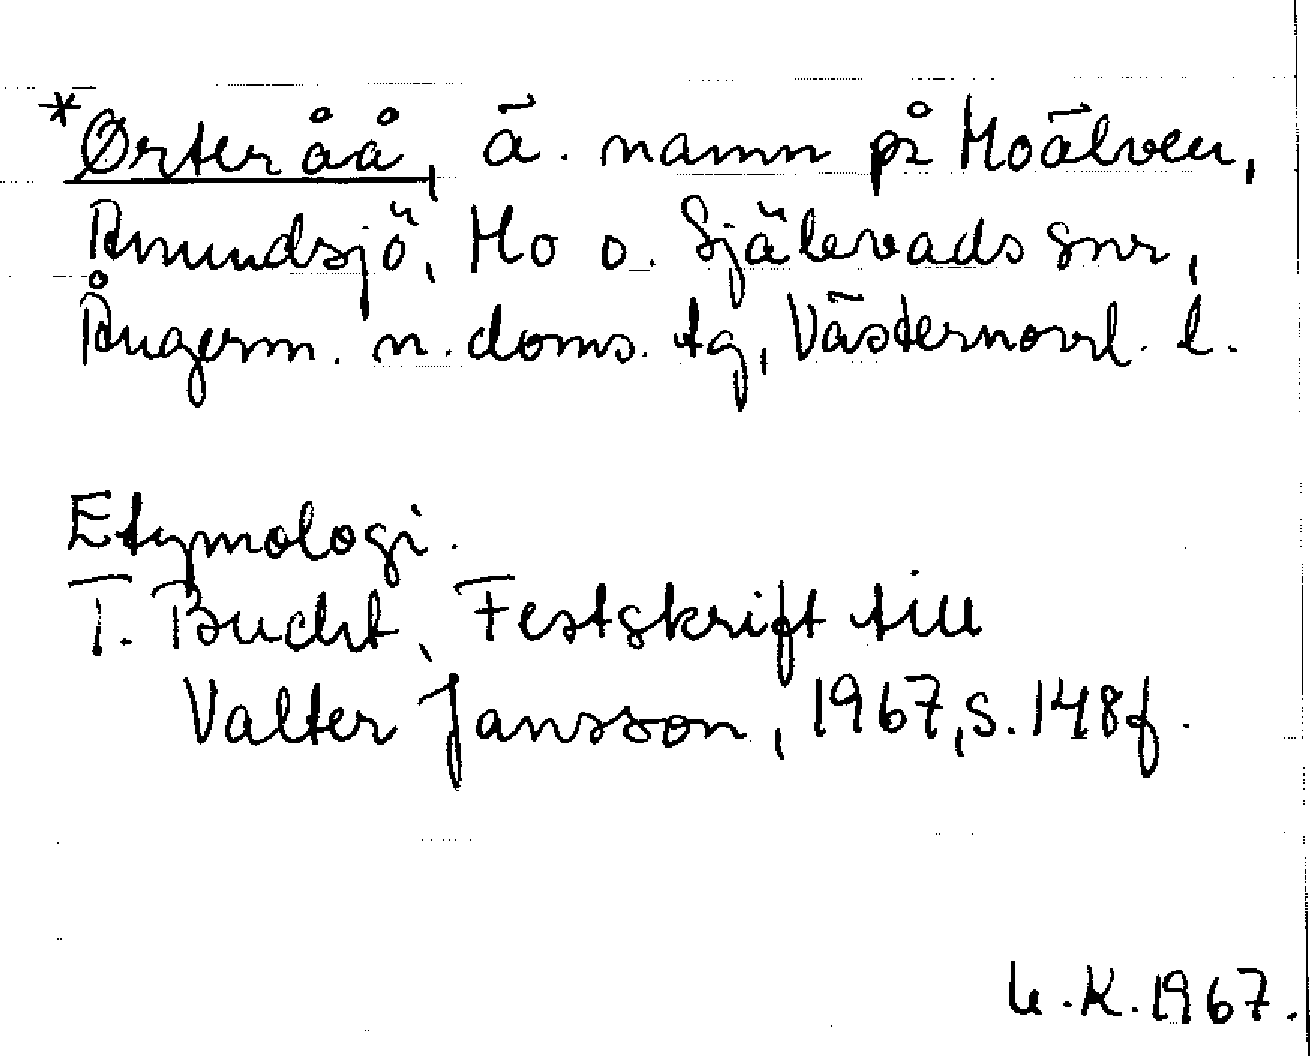 *Ørter åå, ä. namn på Moälven,
Anundsjö, Mo o. Själevads snr,
Ångerm. n. doms. tg, Västernorrl. l.
Etymologi.
T. Bucht, Festskrift till
Valter Jansson, 1967, s. 148f.
U.K. 1967.